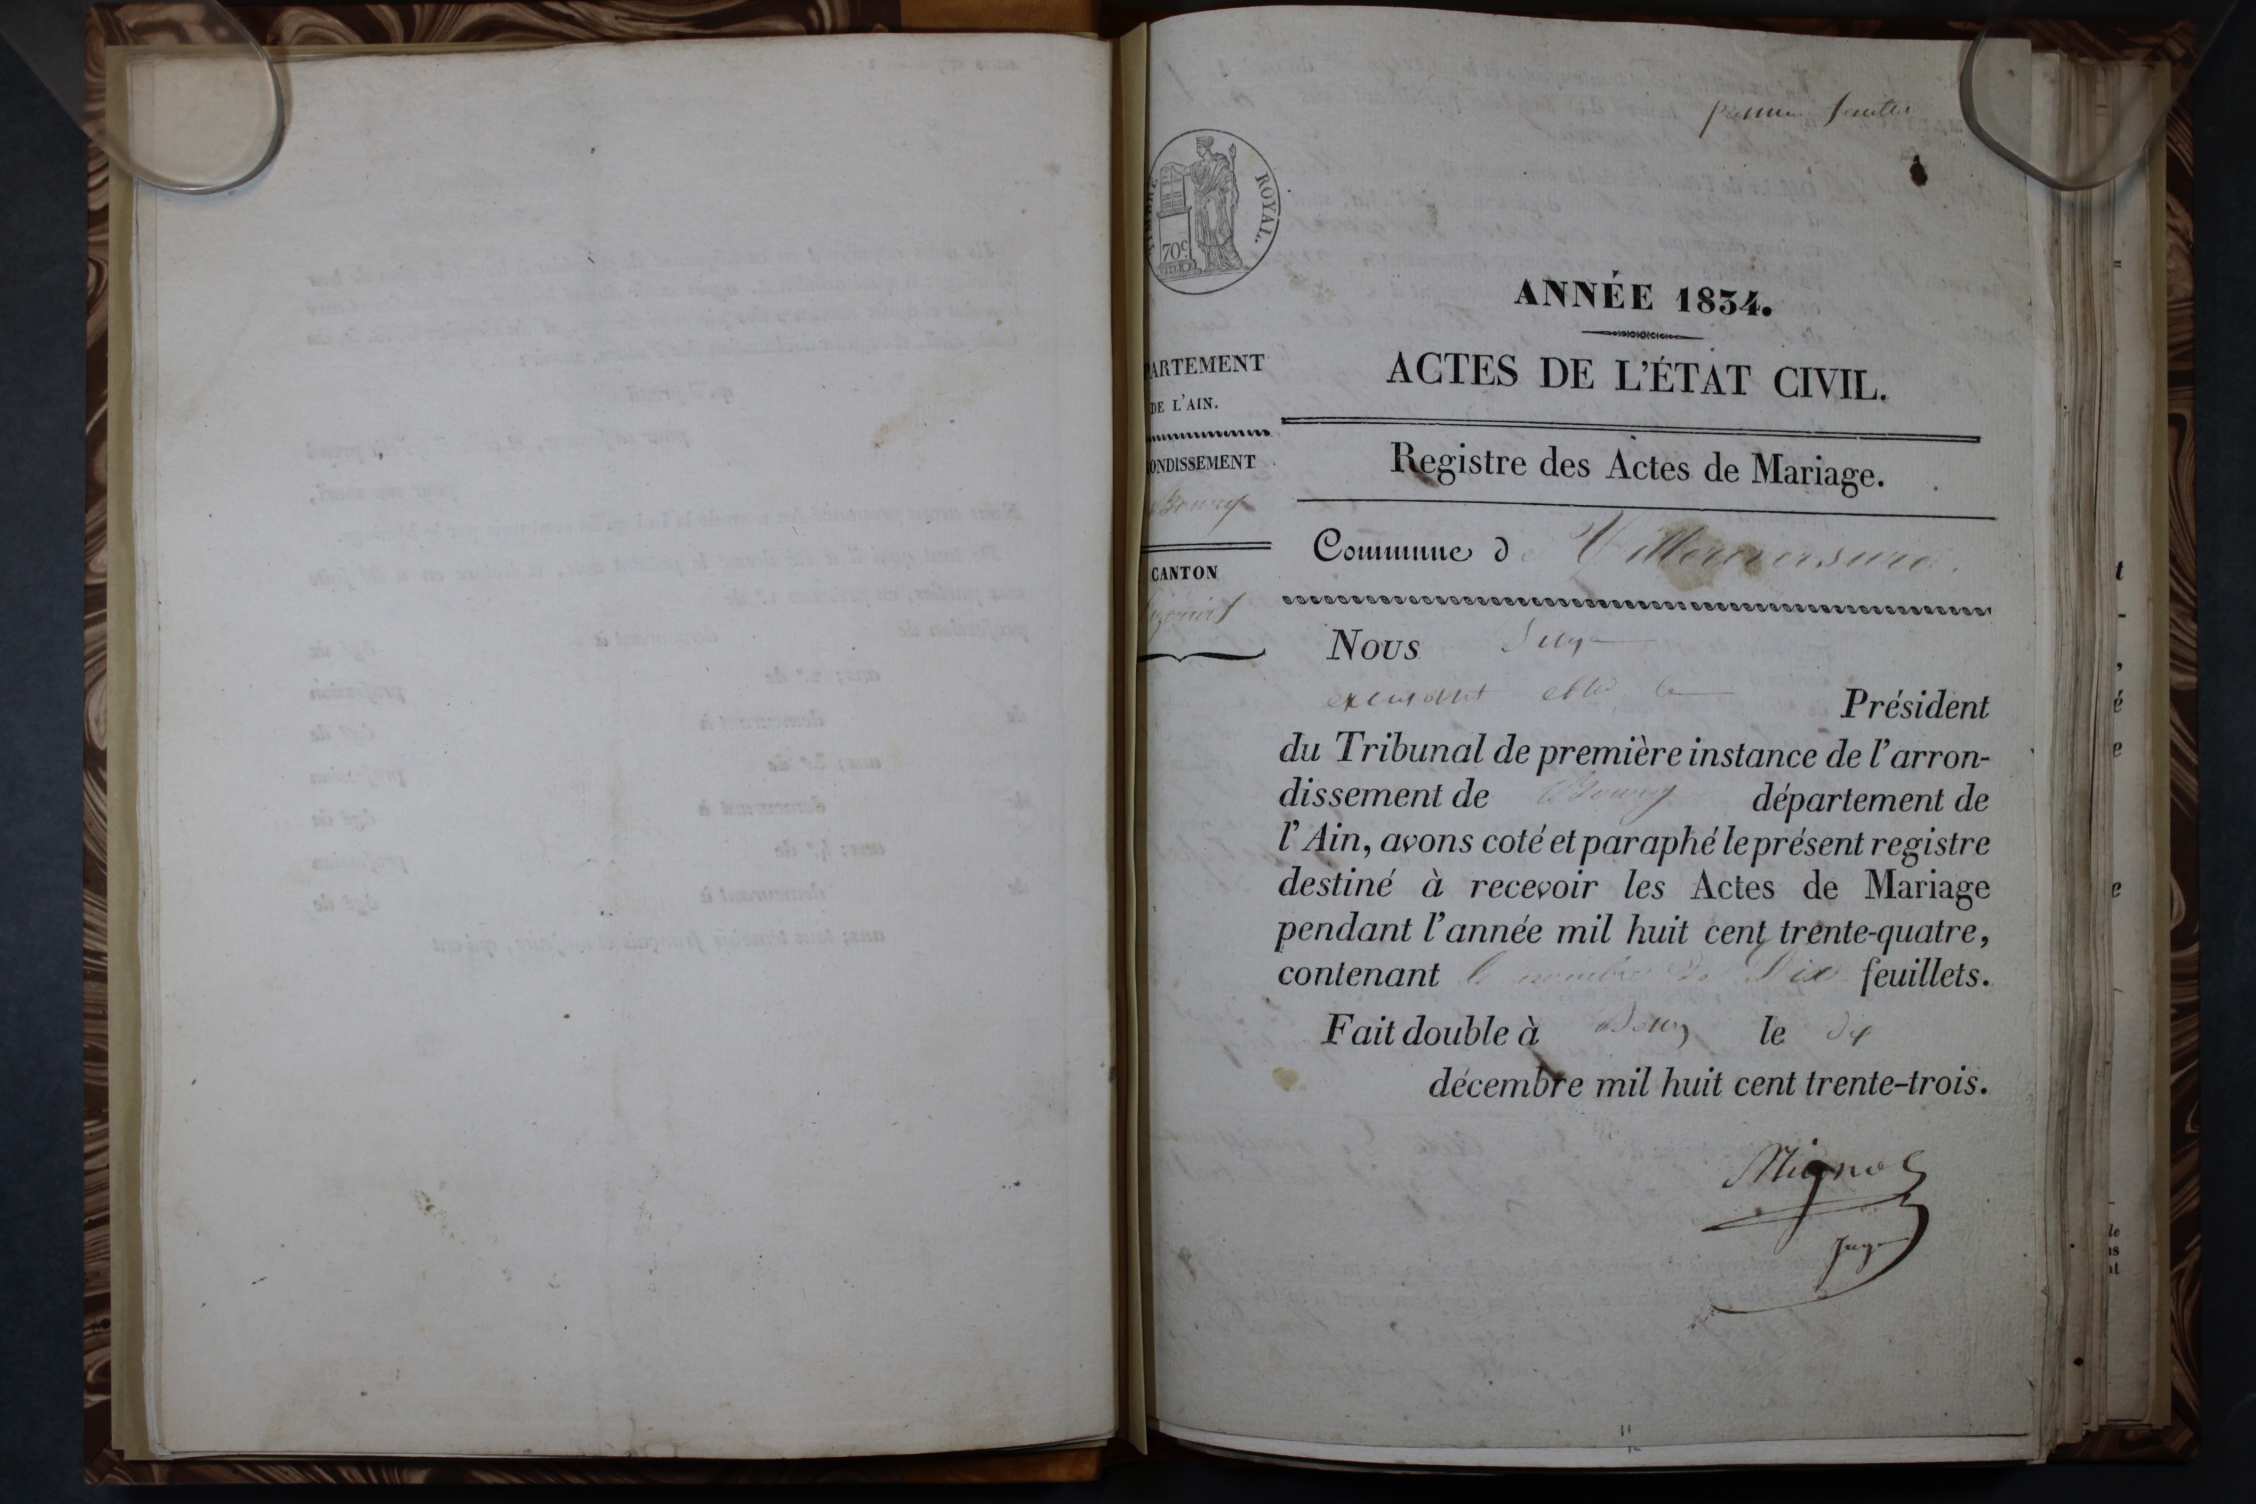 premier feuillet
TIMBRE ROYAL.
70c
ANNÉE 1834.
ACTES DE L'ÉTAT CIVIL.
PARTEMENT
DE L'AIN.
ONDISSEMENT
Bourg
CANTON
Registre des Actes de Mariage.
Commune de Villereversure.
Nous Juge
Président
du Tribunal de première instance de l'arron-
dissement de Bourg département de
l'Ain, avons coté et paraphé le présent registre
destiné à recevoir les Actes de Mariage
pendant l'année mil huit cent trente-quatre,
contenant le nombre de Dix feuillets.
Fait double à Bourg le dix
décembre mil huit cent trente-trois.
Juge